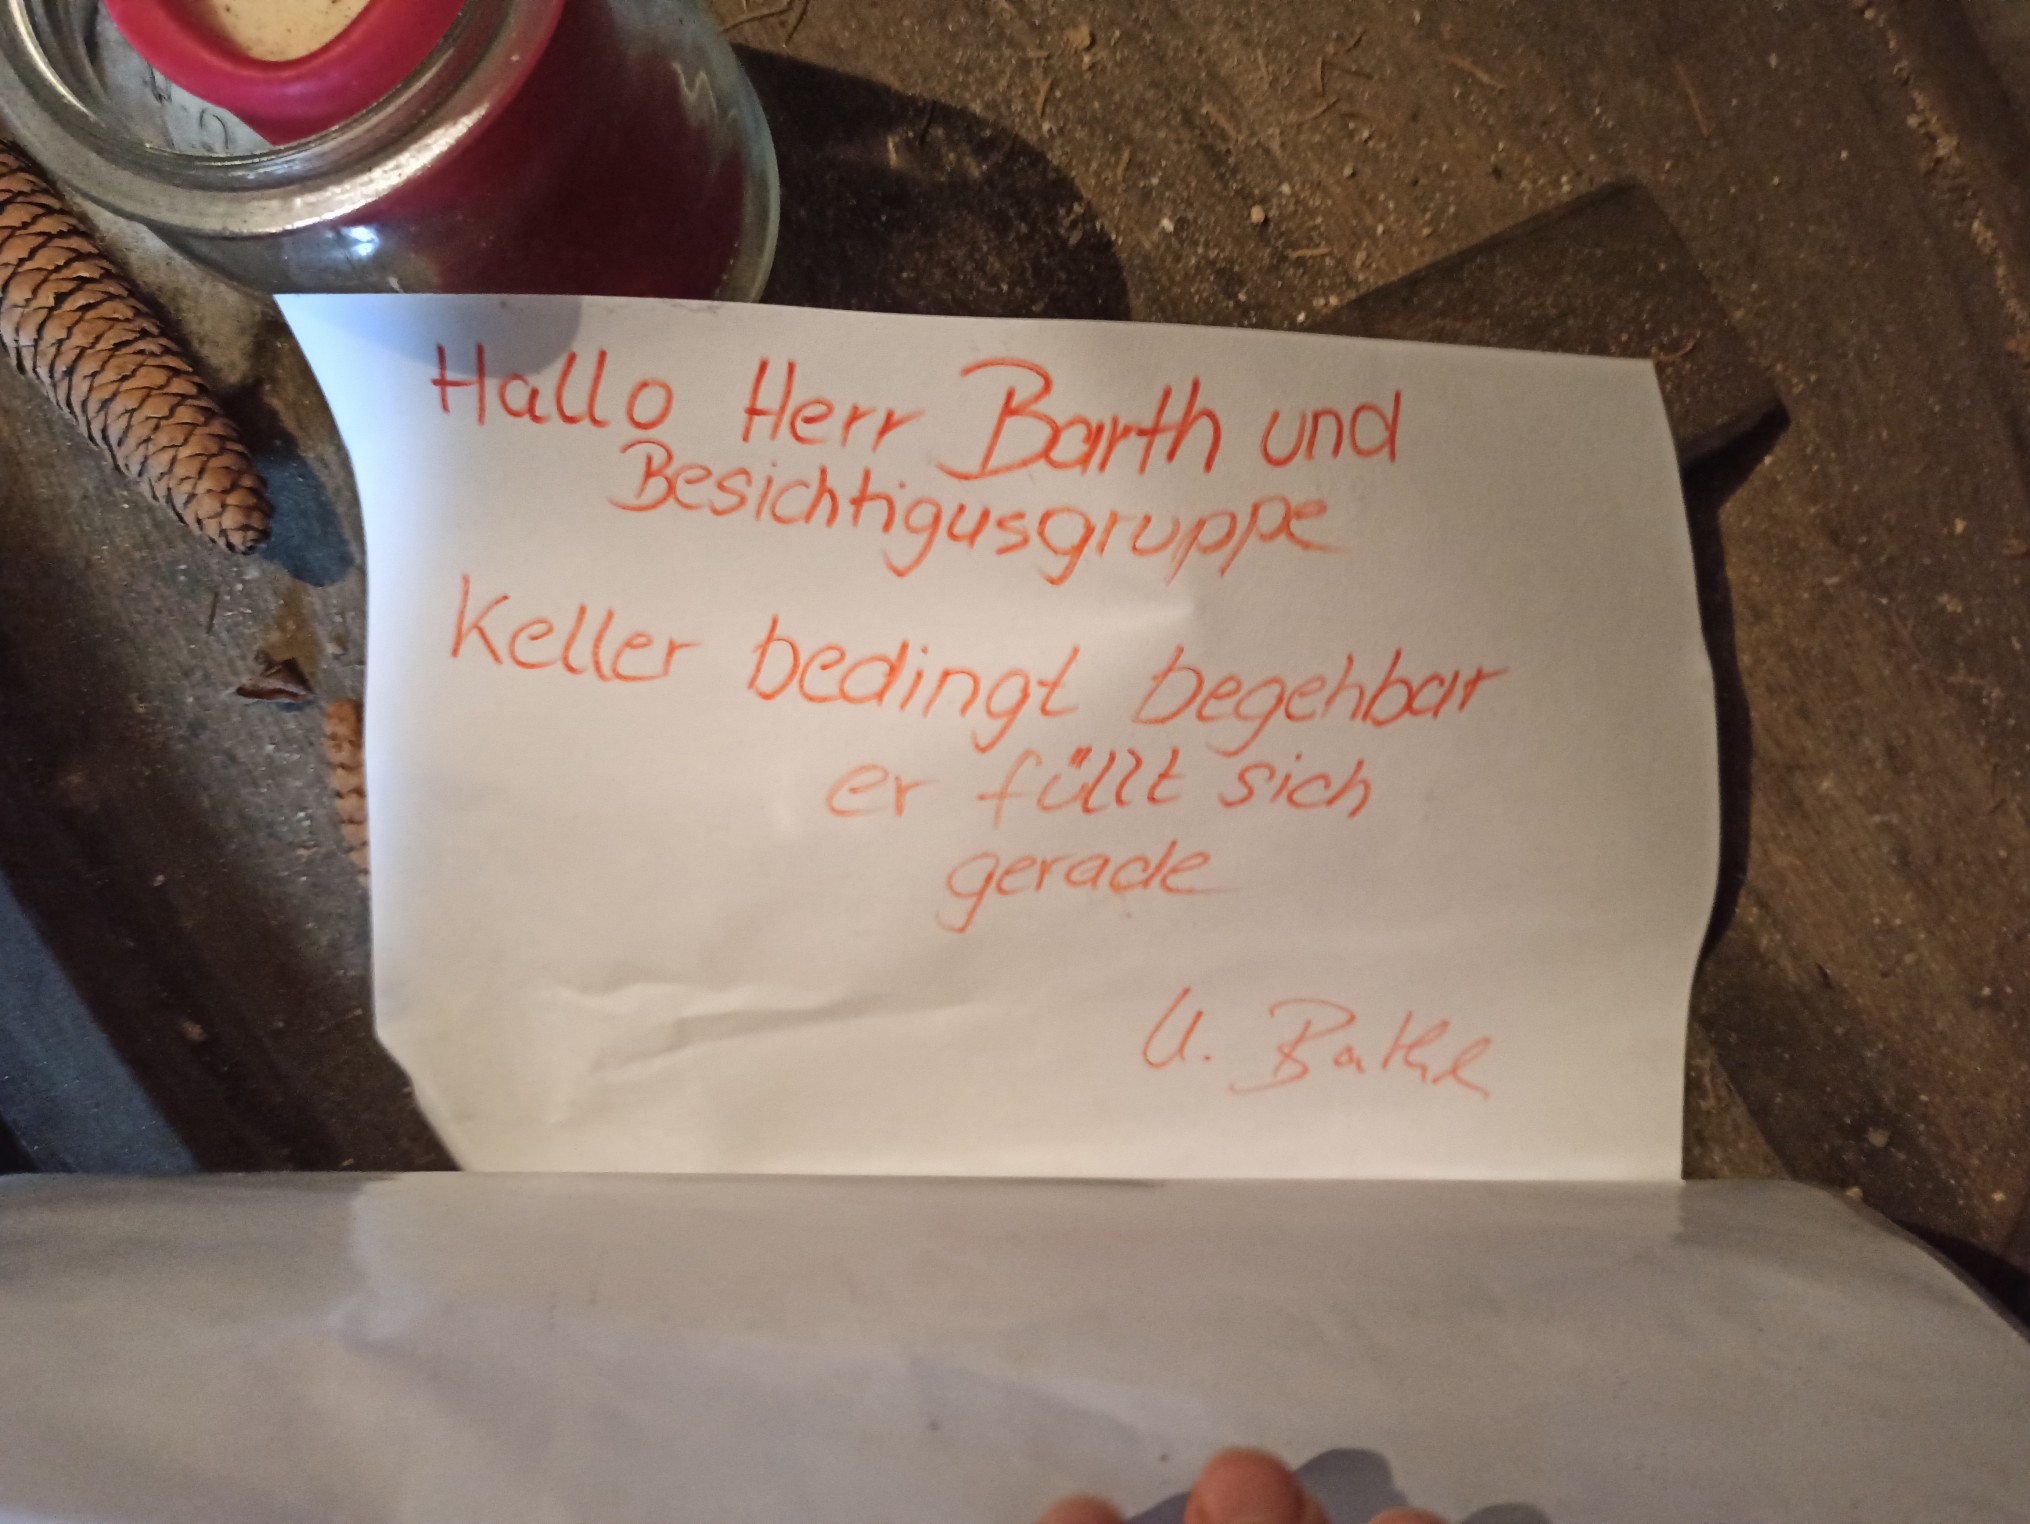 Hallo Herr Barth und
Besichtigusgruppe
Keller bedingt begehbar
er füllt sich
gerade
U.